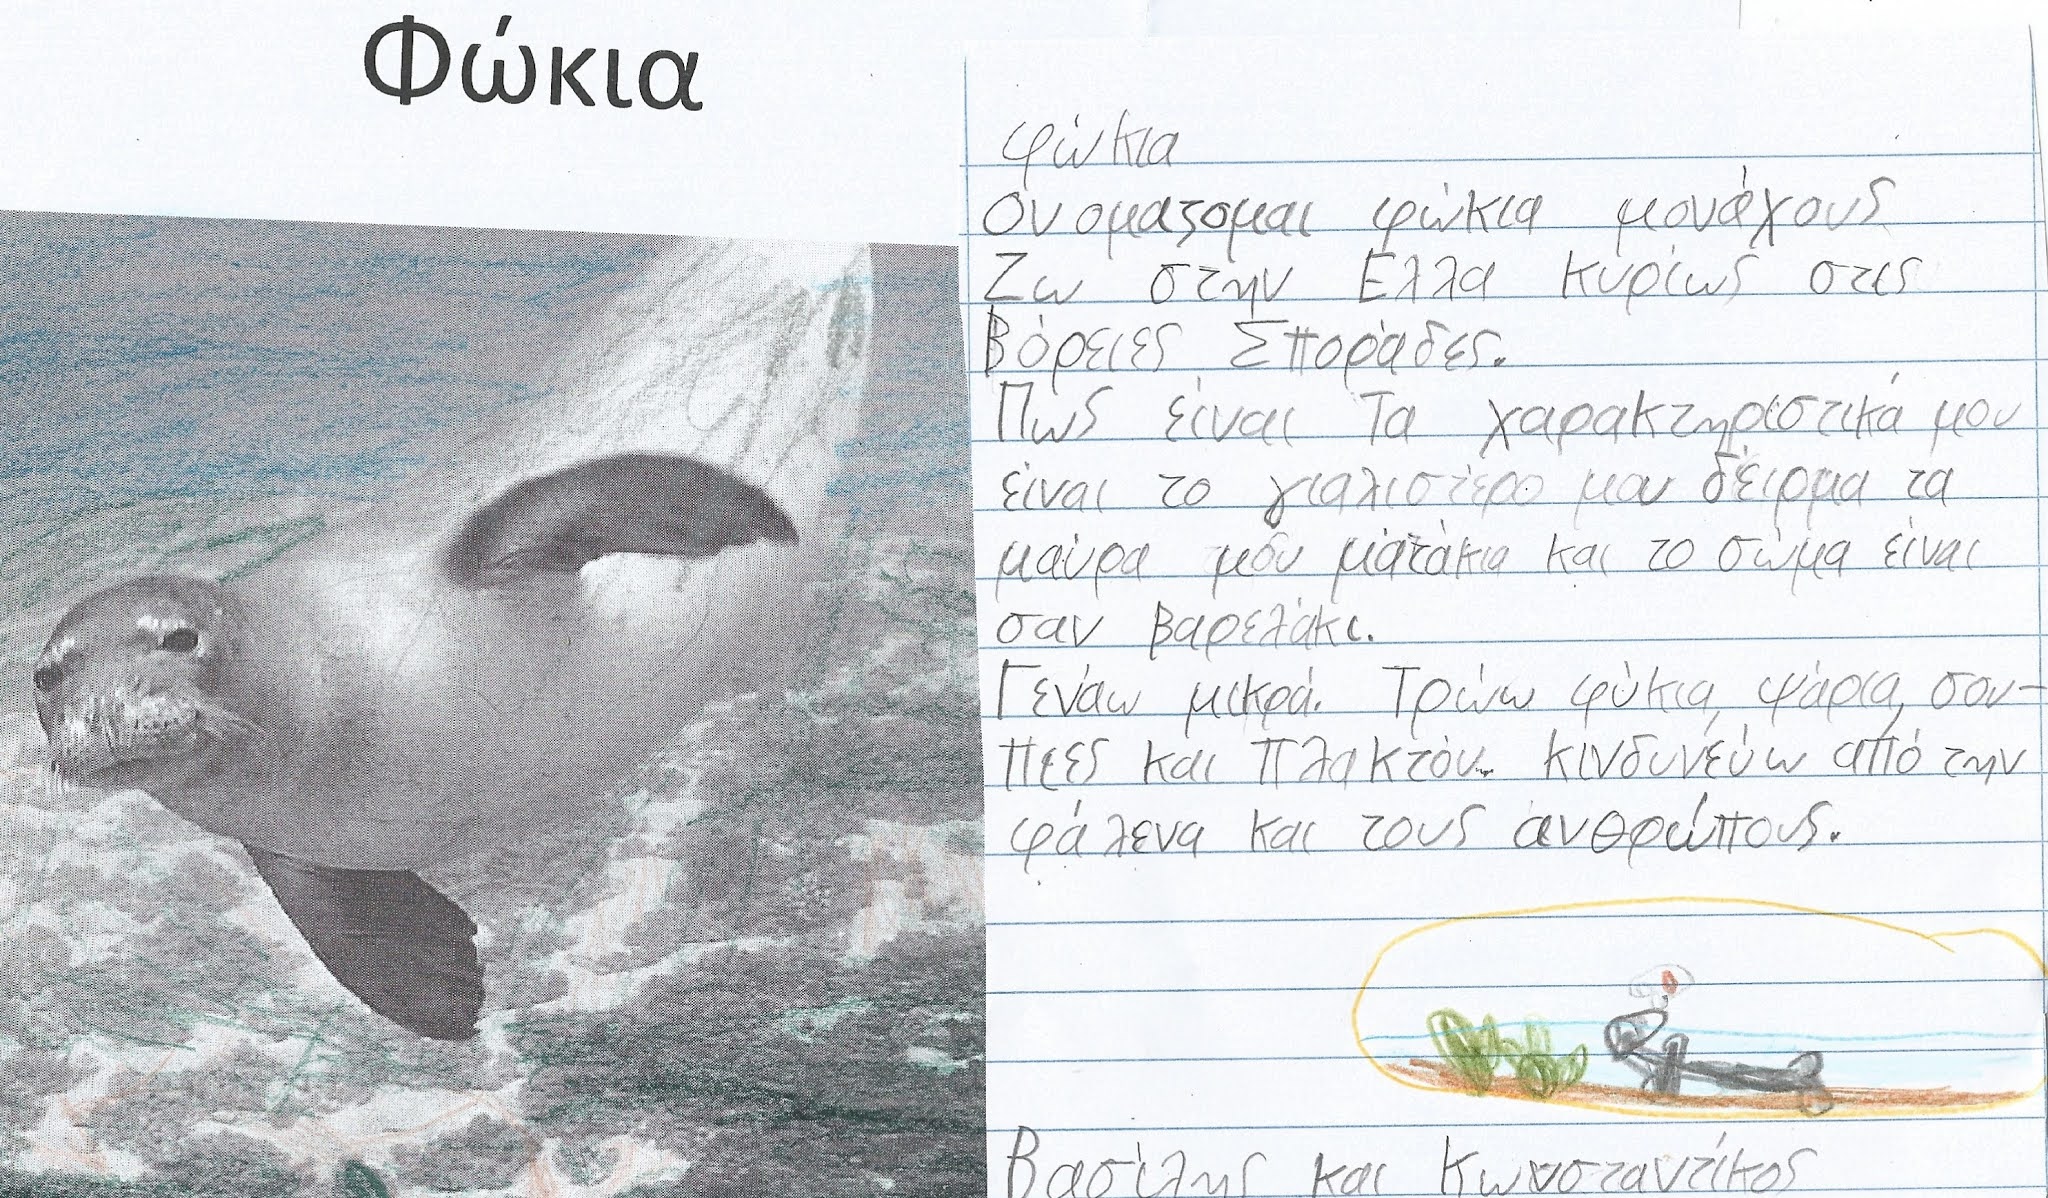 Φώκια
φώκια
Ονομαζομαι φώκια μονάχους
Ζω στην Ελλα κυρίως στις
Βόρειες Σποράδες.
Πως είναι Τα χαρακτηριστικά μου
είναι το γιαλιστέρο μου δέιρμα τα
μαύρα μου ματάκια και το σώμα είναι
σαν βαρελάκι.
Γενάω μικρά. Τρώω φύκια, ψάρια, σου-
πιες και πλακτόν. κινδυνεύω από την
φάλενα και τους ανθρώπους.
Βασίλης και Κωνσταντίκος